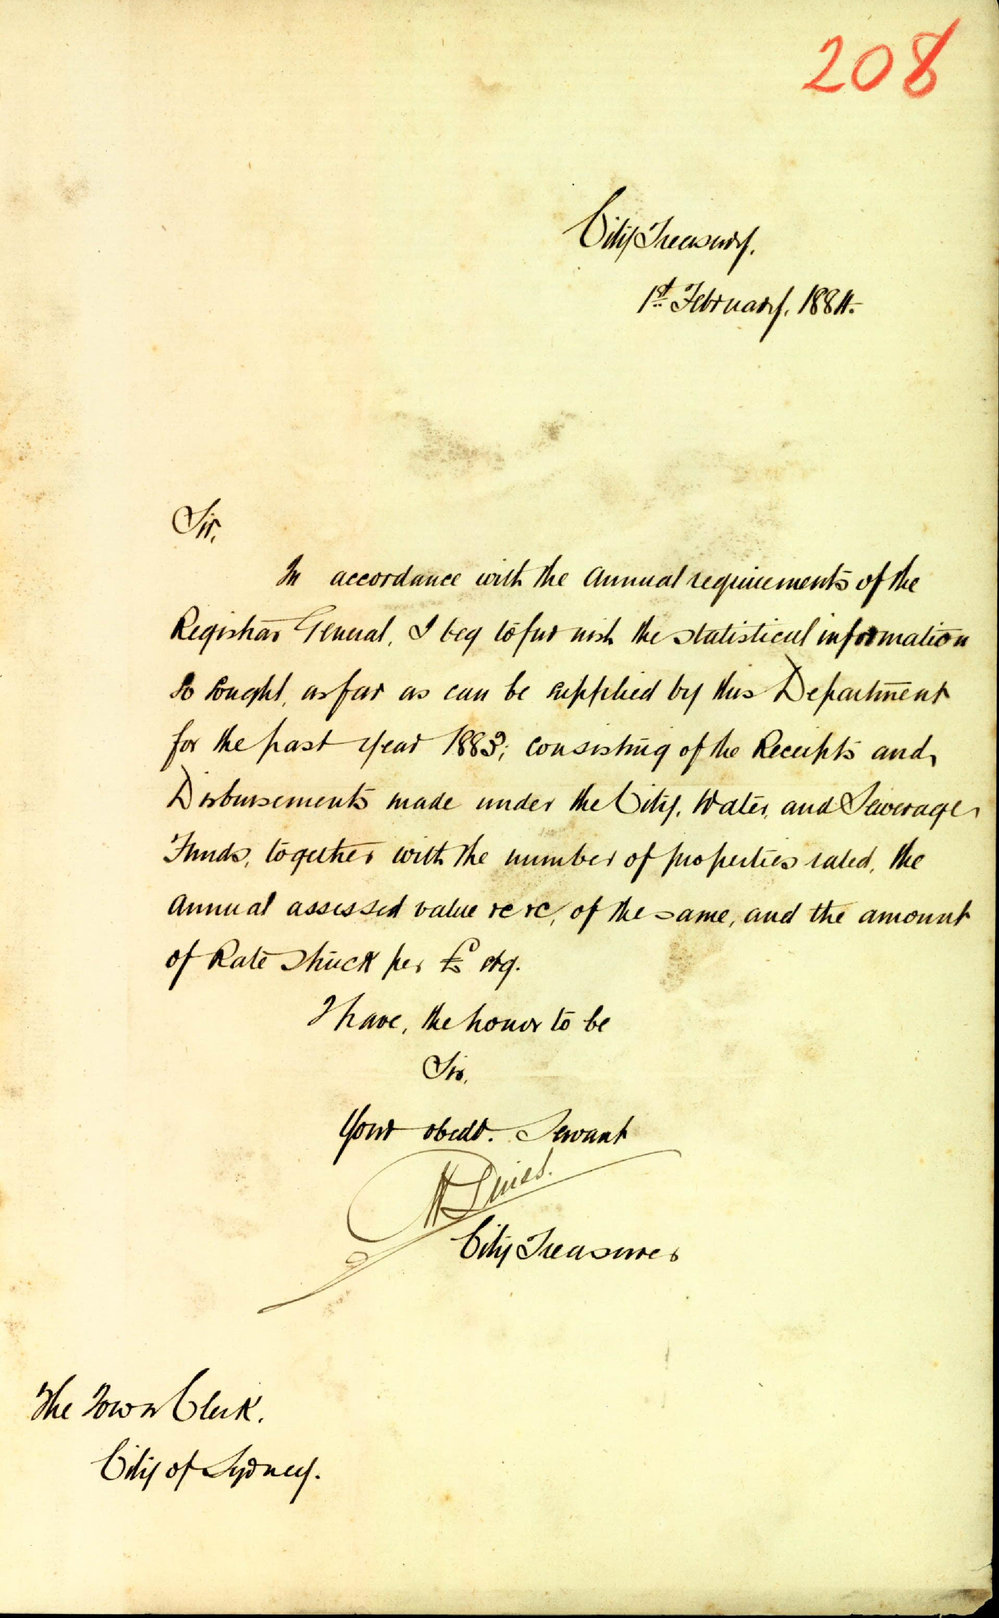 208
City Treasury,
1st February, 1884.
Sir,
In accordance with the annual requirements of the
Registrar General, I beg to furnish the statistical information
so sought, as far as can be supplied by this Department
for the past year 1883; consisting of the Receipts and
Disbursements made under the City, Water, and Sewerage
Funds, together with the number of properties rated, the
annual assessed value &c &c, of the same, and the amount
of Rate struck per £ stg.
I have, the honor to be
Sir,
Your obedt. Servant
City Treasurer
The Town Clerk.
City of Sydney.